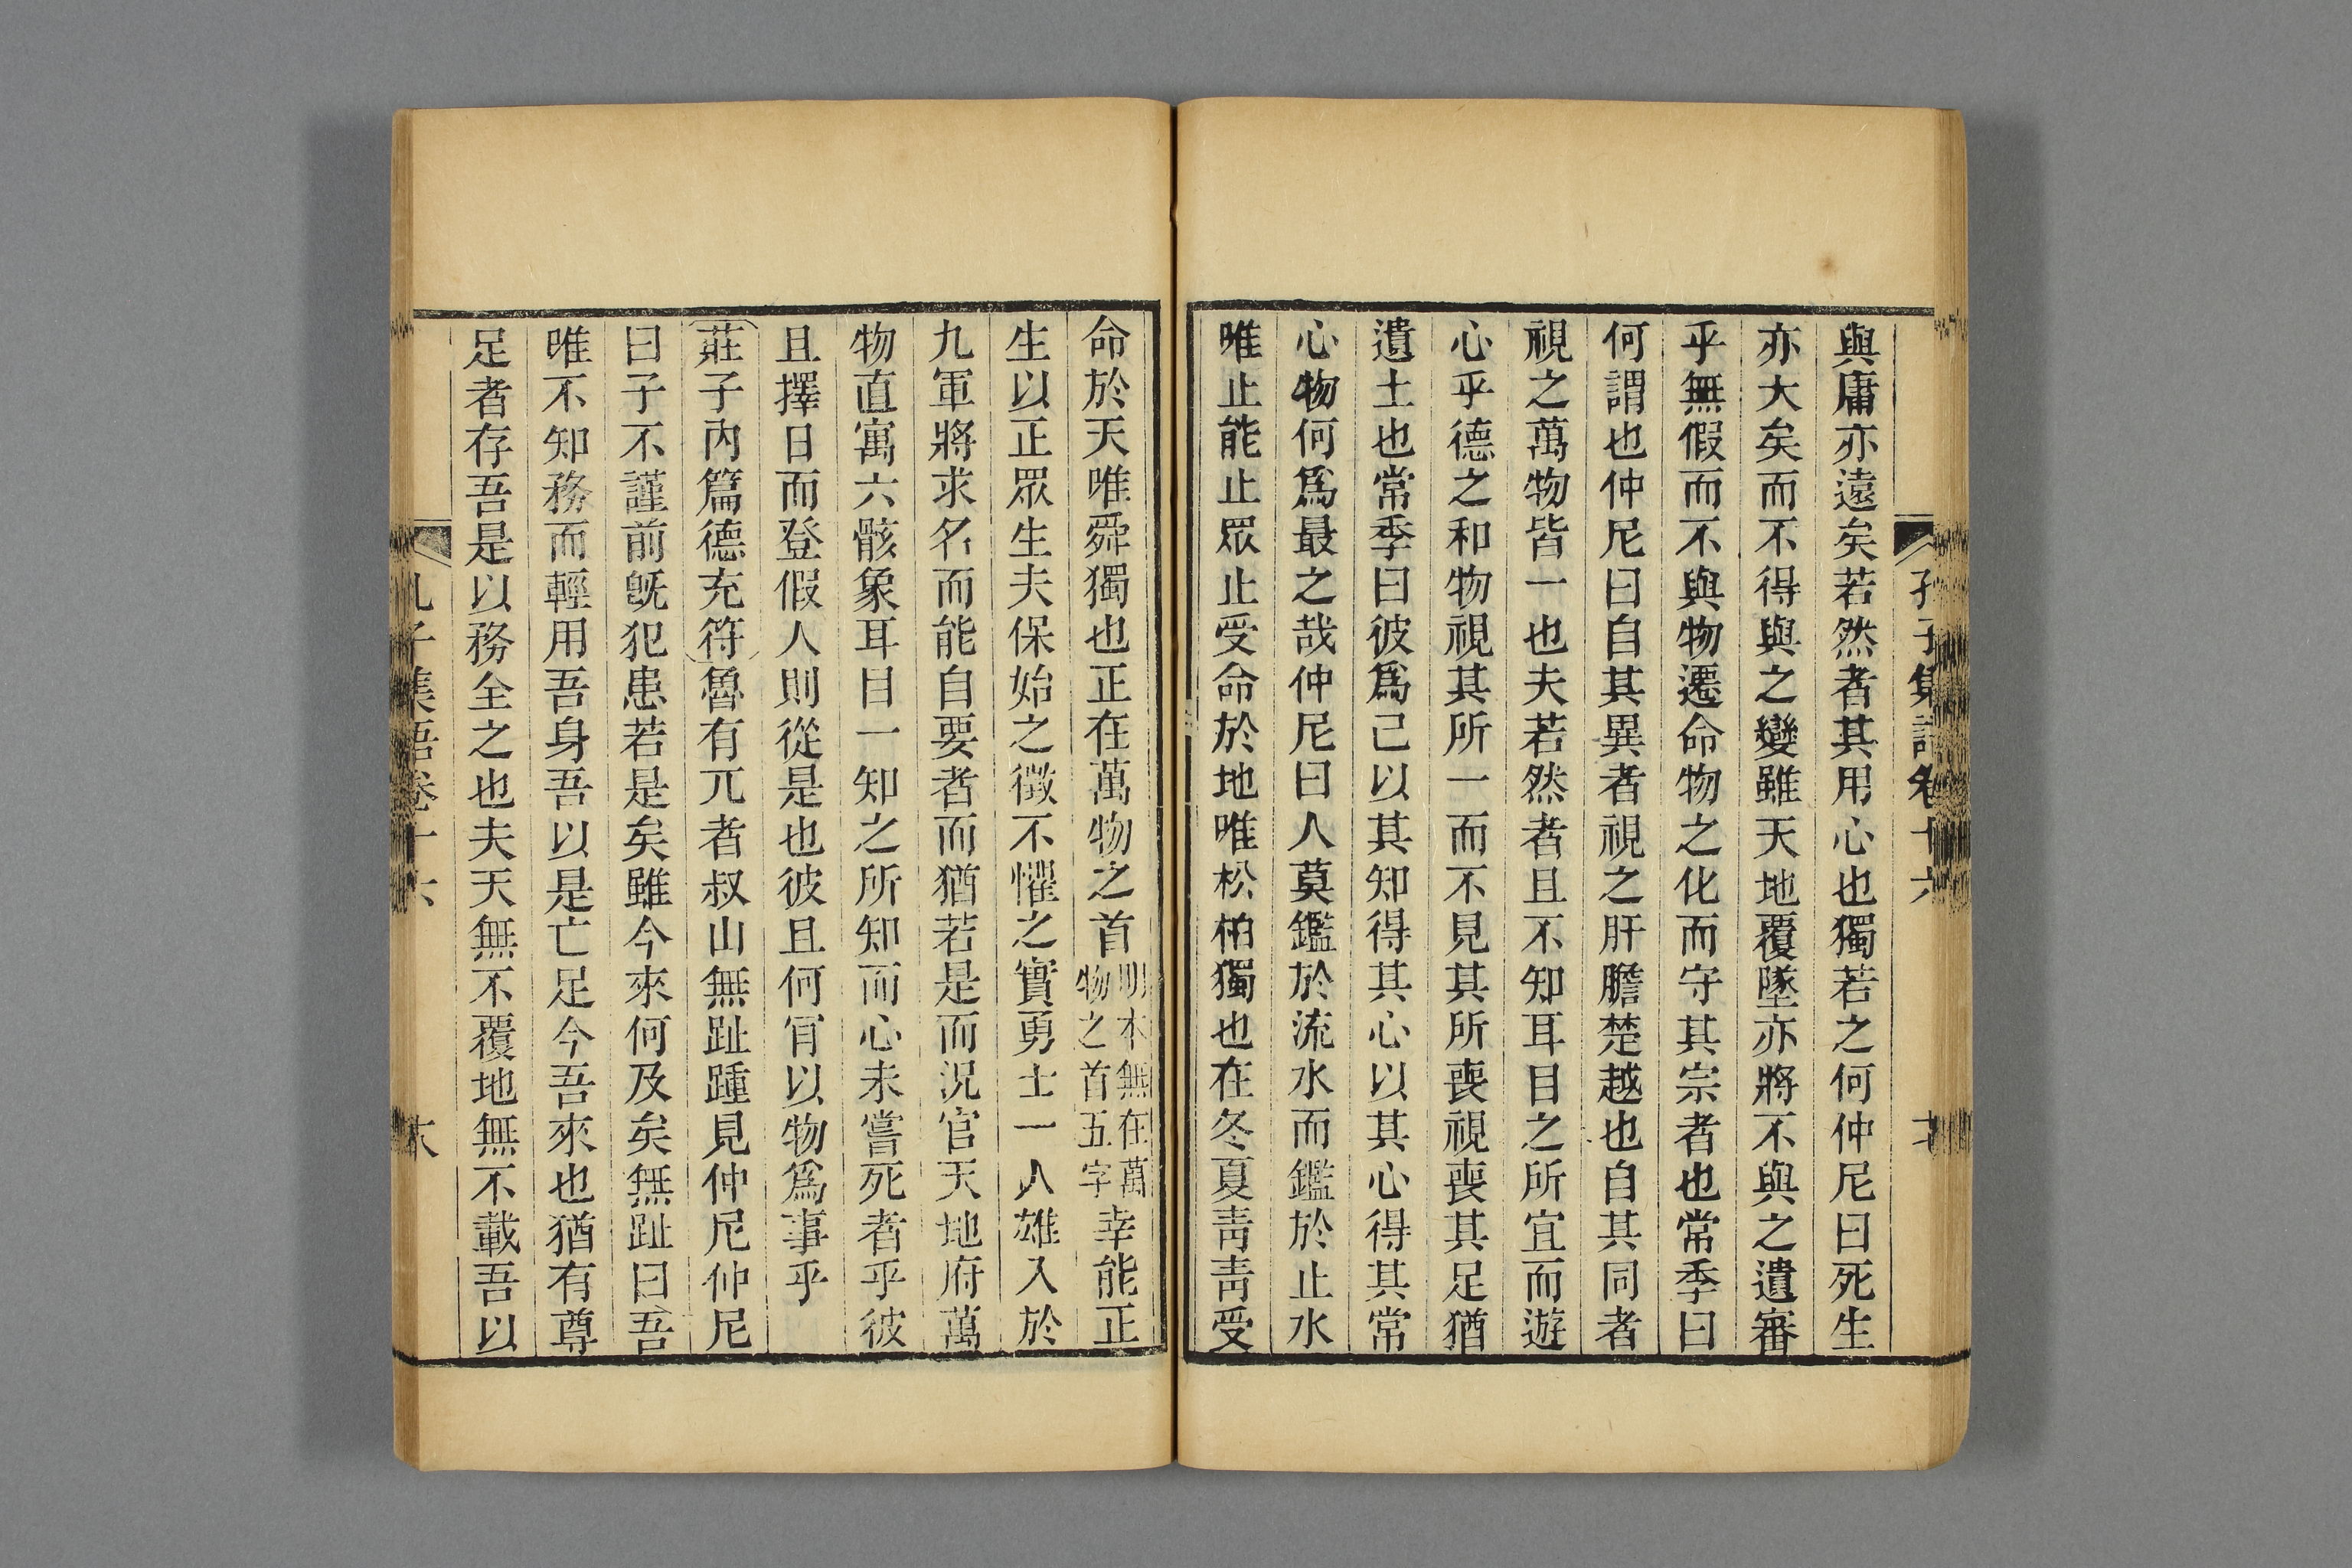 與庸亦遠矣若然者其用心也獨若之何仲尼曰死生
亦大矣而不得與之變雖天地覆墜亦將不與之遺審
乎無假而不與物遷命物之化而守其宗者也常季曰
何謂也仲尼曰自其異者視之肝膽楚越也自其同者
視之萬物皆一也夫若然者且不知耳目之所宜而遊
心乎德之和物視其所一而不見其所喪視喪其足猶
遺土也常季曰彼爲己以其知得其心以其心得其常
心物何爲最之哉仲尼曰人莫鑑於流水而鑑於止水
唯止能止眾止受命於地唯松柏獨也在冬夏靑靑受
命於天唯舜獨也正在萬物之首明本無在萬物之首五字幸能正
生以正眾生夫保始之徵不懼之實勇士一人雄入於
九軍將求名而能自要者而猶若是而況官天地府萬
物直寓六骸象耳目一知之所知而心未嘗死者乎彼
且擇日而登假人則從是也彼且何肎以物爲事乎
莊子內篇德充符魯有兀者叔山無趾踵見仲尼仲尼
曰子不謹前旣犯患若是矣雖今來何及矣無趾曰吾
唯不知務而輕用吾身吾以是亡足今吾來也猶有尊
足者存吾是以務全之也夫天無不覆地無不載吾以
孔子集語卷十六